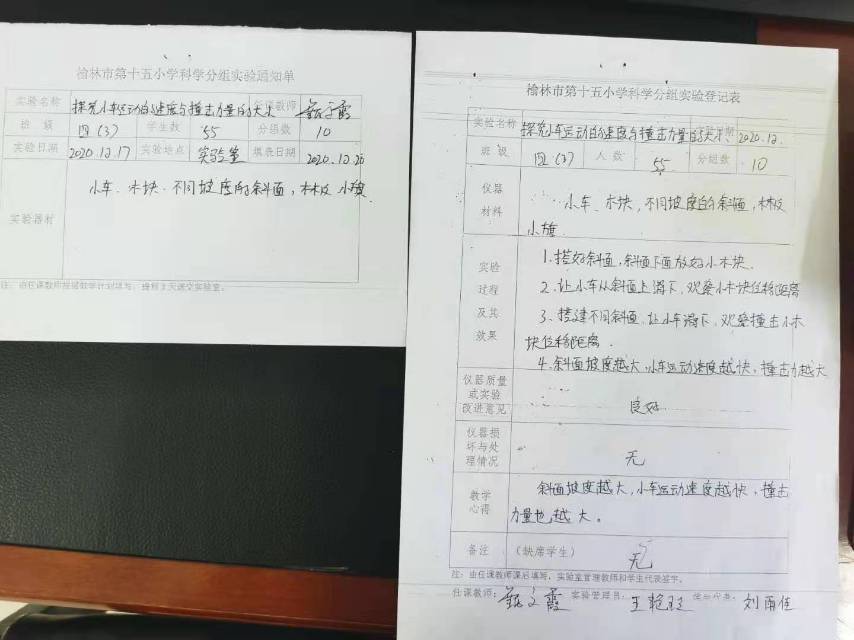 榆林市第十五小学科学分组实验通知单
实验名称 探究小车运动的速度与撞击力量的大小 任课教师
班 级 四(3) 学生数 55 分组数 10
实验日期 2020.12.17 实验地点 实验室 填表日期 2020.12.
实验器材 小车、木块、不同坡度的斜面,木板 小旗
注:由任课教师按照教学计划填写,提前3天送交实验室。
榆林市第十五小学科学分组实验登记表
实验名称 探究小车运动的速度与撞击力量的大小 日期 2020.12.
班 级 四(3) 人 数 55 分组数 10
仪器
材料
小车、木块,不同坡度的斜面,木板
小旗
实验
过程
及其
效果
1、搭好斜面,斜面下面放好小木块.
2、让小车从斜面上滑下,观察小木块位移距离
3、搭建不同斜面,让小车滑下,观察撞击小木
块位移距离.
4、斜面坡度越大,小车运动速度越快,撞击力越大
仪器质量
或实验
改进意见
良好
仪器损
坏与处
理情况
无
教学
心得
斜面坡度越大,小车运动速度越快,撞击
力量也越大。
备注 (缺席学生) 无
注:由任课教师课后填写,实验室管理教师和学生代表签字。
任课教师: 实验管理员: 王艳 学生代表: 刘雨佳